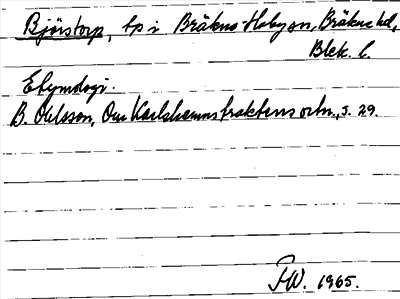 Björstorp, tp i Bräkne-Hobysn, Bräkne hd,
Blek. l.
Etymologi.
B. Ohlsson, Om Karlshamnstraktens ortn., s. 29.
HW. 1965.